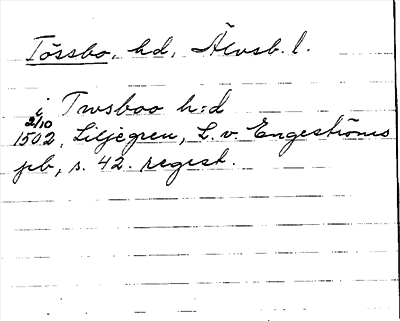 Tössbo, hd, Älvsb. l.
i Twsboo h:d
2/10
1502, Liljegren, L. v. Engeströms
pb, s. 42. regest.